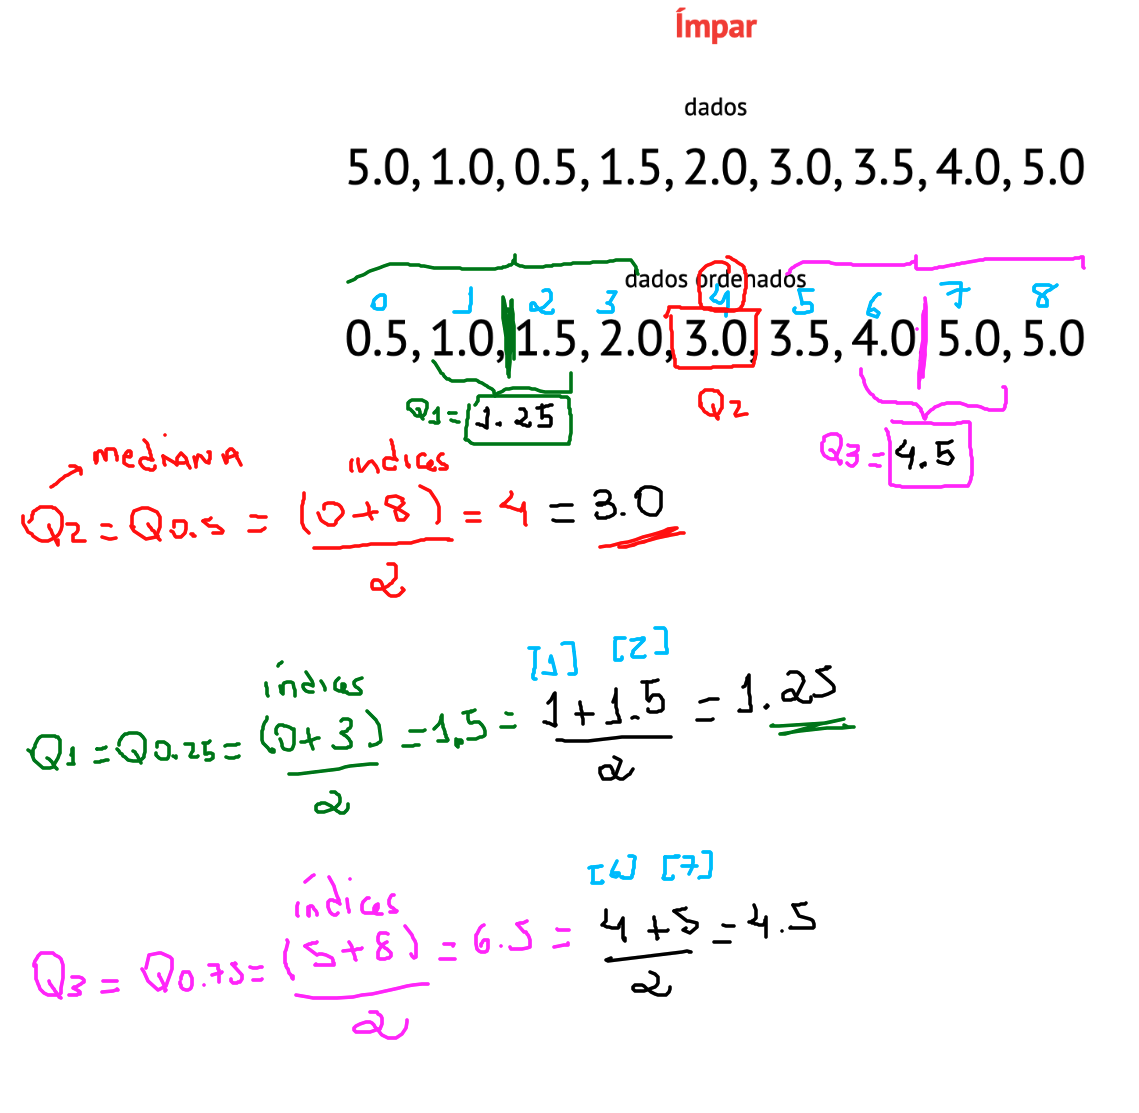 Ímpar
dados
5.0, 1.0, 0.5, 1.5, 2.0, 3.0, 3.5, 4.0, 5.0
dados ordenados
0 1 2 3 4 5 6 7 8
0.5, 1.0, 1.5, 2.0, 3.0, 3.5, 4.0, 5.0, 5.0
Q1 = 1.25
Q2
Q3 = 4.5
MEDIANA
índices
Q2 = Q0.5 = (0+8) = 4 = 3.0
2
[1] [2]
índices
Q1 = Q0.25 = (0+3) = 1.5 = 1+1.5 = 1.25
2 2
[6] [7]
índices
Q3 = Q0.75 = (5+8) = 6.5 = 4+5 = 4.5
2 2